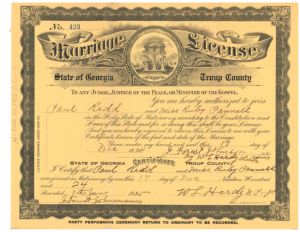 No. 423
Marriage License
State of Georgia Troup County
To any Judge, Justice of the Peace, or Minister of the Gospel.
You are hereby authorized to join
Paul Redd and Miss Ruby Pannell
in the Holy State of Matrimony according to the Constitution and
Laws of this State and for so doing this shall be your License
And you are hereby required to return this License to me with your
Certificate hereon of the fact and date of the Marriage.
Given under my hand and seal this 17
Dec 1924
STATE OF GEORGIA CERTIFICATE TROUP COUNTY
I Certify that Paul Redd and Miss Ruby Pannell
were joined in Matrimony by me this 17 day of Dec Nineteen Hundred
and 24
Recorded
W T Hardy
PARTY PERFORMING CEREMONY RETURN TO ORDINARY TO BE RECORDED.